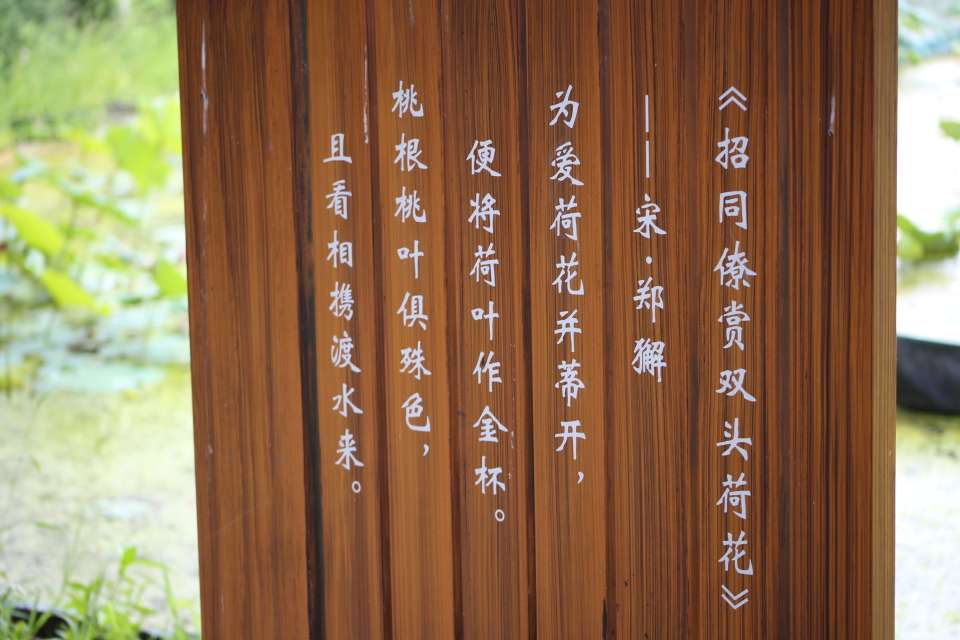 《招同僚赏双头荷花》
——宋·郑獬
为爱荷花并蒂开，
便将荷叶作金杯。
桃根桃叶俱殊色，
且看相携渡水来。